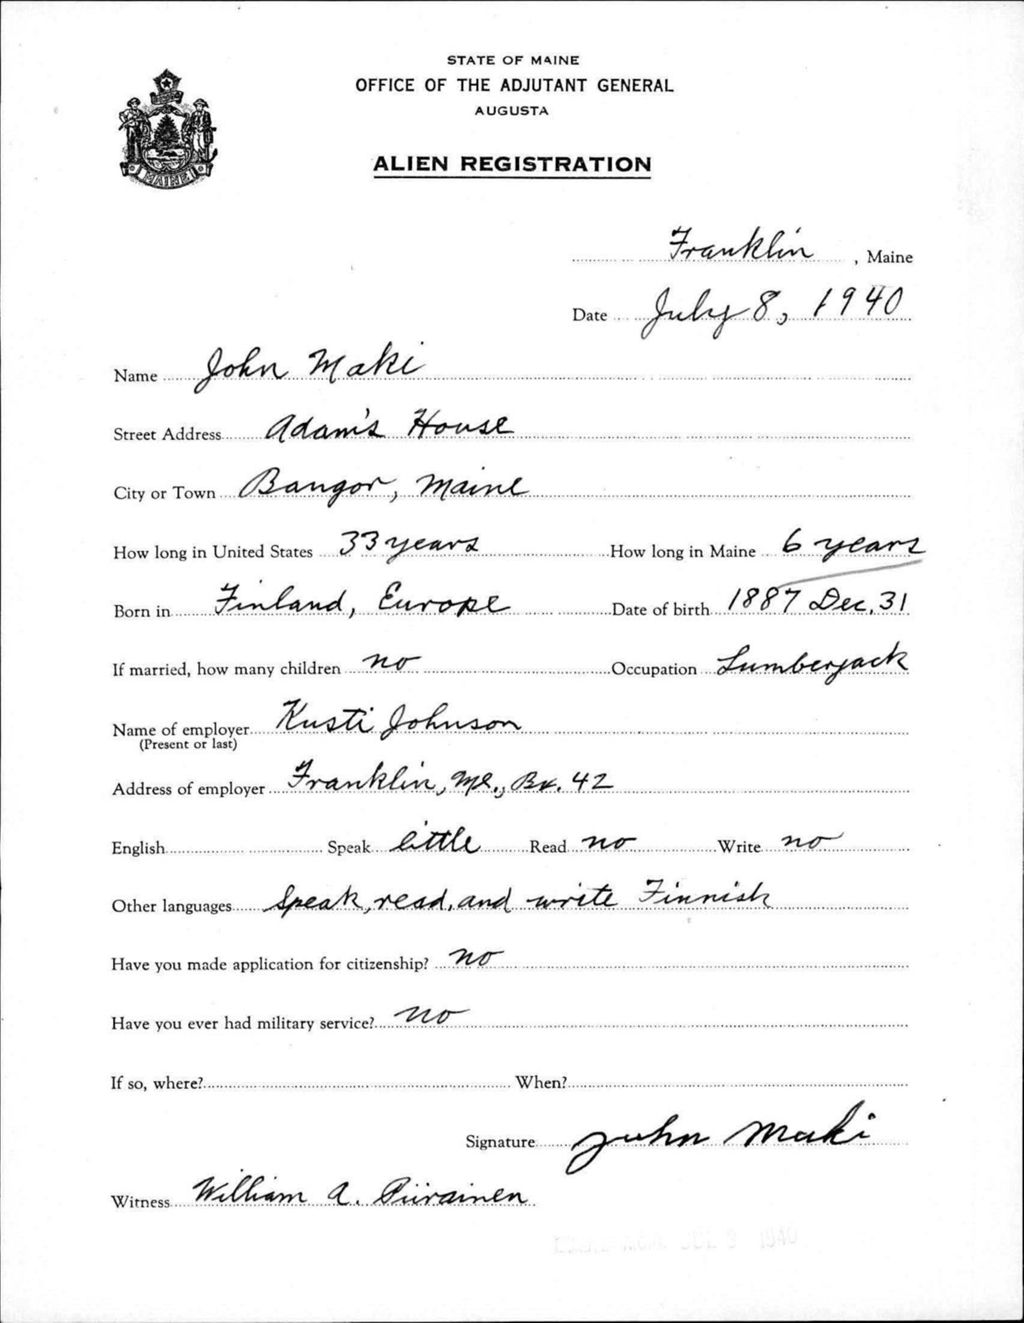 STATE OF MAINE
OFFICE OF THE ADJUTANT GENERAL
AUGUSTA
ALIEN REGISTRATION
MAINE
Franklin, Maine
Date July 8, 1940
Name John Maki
Street Address Adam's House
City or Town Bangor, Maine
How long in United States 33 years How long in Maine 6 years
Born in Finland, Europe Date of birth 1887 Dec. 31
If married, how many children no Occupation Lumberjack
Name of employer Kusti Johnson
(Present or last)
Address of employer Franklin, Me., Bx. 42
English Speak little Read no Write no
Other languages Speak, read, and write Finnish
Have you made application for citizenship? no
Have you ever had military service? no
If so, where? When?
Signature John Maki
Witness William A. Piirainen
JUL 9 1940